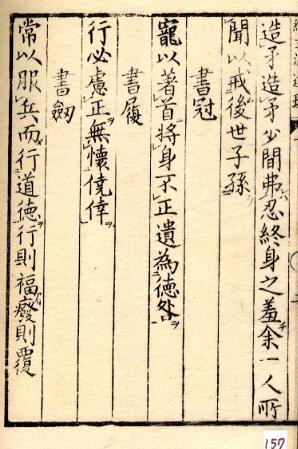 造矛造矛少間弗忍終身之羞余一人所
聞以戒後世子孫
書冠
寵以著首將身不正遺為德咎
書履
行必慮正無懷僥倖
書劔
常以服兵而行道德行則福癈則覆
157